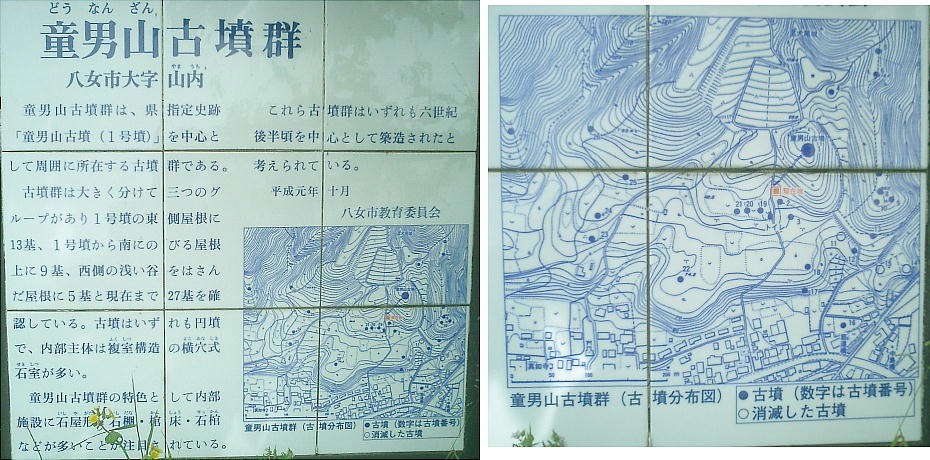 どう なん ざん
童男山古墳群
八女市大字 山内
やま うち
童男山古墳群は、県指定史跡
「童男山古墳（1号墳）」を中心と
して周囲に所在する古墳群である。
古墳群は大きく分けて三つのグ
ループがあり1号墳の東側屋根に
13基、1号墳から南にのびる屋根
上に9基、西側の浅い谷をはさん
だ屋根に5基と現在まで27基を確
認している。古墳はいずれも円墳
で、内部主体は複室構造の横穴式
石室が多い。
童男山古墳群の特色として内部
施設に石屋形・石棚・棺床・石棺
などが多いことが注目されている。
これら古墳群はいずれも六世紀
後半頃を中心として築造されたと
考えられている。
平成元年 十月
八女市教育委員会
童男山古墳群（古墳分布図）
●古墳（数字は古墳番号）
○消滅した古墳
童男山古墳
現在地
トイレ
25
24
23
22
21 20 19
2
3
7
11
17
16
真如寺
0 50 100 200 m
童男山古墳群（古墳分布図）
●古墳（数字は古墳番号）
○消滅した古墳